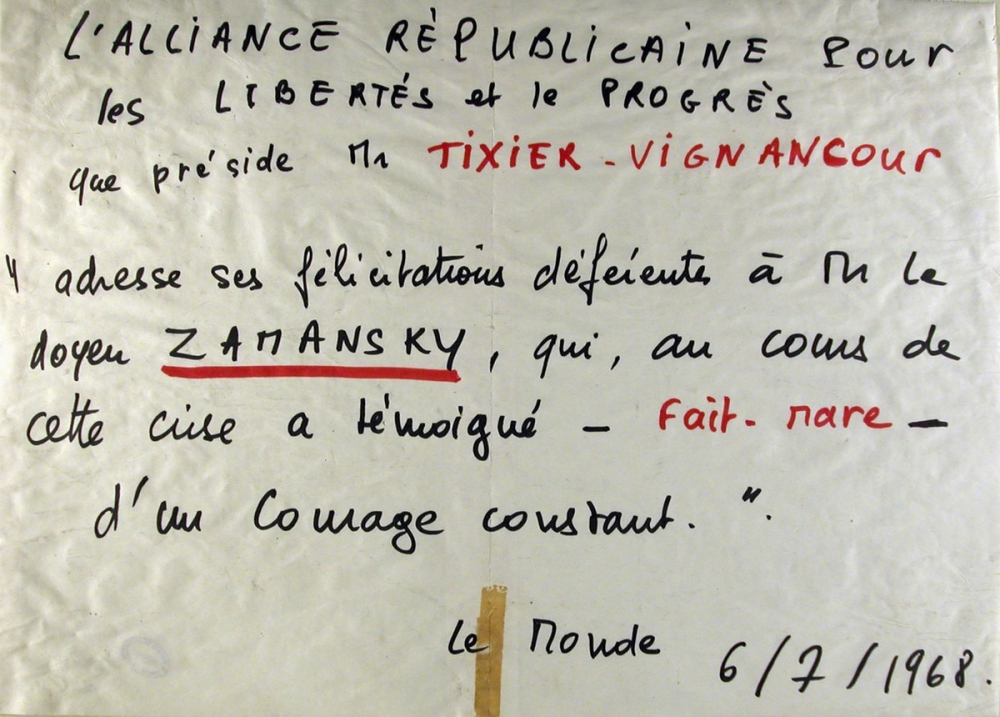 L'ALLIANCE RÈPUBLICAINE Pour
les LIBERTÉS et le PROGRÈS
que préside Mr TIXIER - VIGNANCOUR
" adresse ses félicitations déférentes à Mr le
doyen ZAMANSKY, qui, au cours de
cette crise a témoigné - Fait. rare -
d'un Courage constant. ".
Le Monde 6/7/1968.